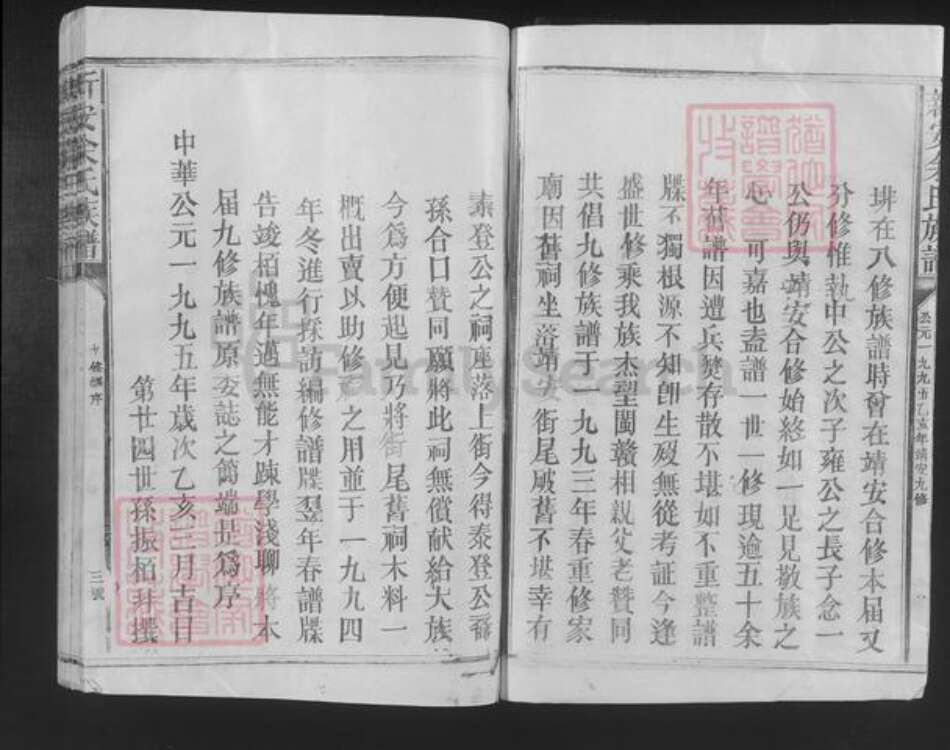 公元一九九五乙亥年靖安九修
琲在八修族譜時會在靖安合修本届又
分修惟執中公之次子雍公之長子念一
公仍與靖安合修始終如一足見敬族之
心可嘉也盍譜一世一修現逾五十余
年舊譜因遭兵焚存散不堪如不重整譜
牒不獨根源不知卽生殁無從考証今逢
盛世修乘我族杰型閩贛相親父老贊同
共倡九修族譜于一九九三年春重修家
廟因舊祠坐落靖安街尾破舊不堪幸有
泰登公之祠座落上街今得泰登公裔
孫合口贊同願將此祠無償献給大族
今爲方便起見乃將街尾舊祠木料一
概出賣以助修之用並于一九九四
年冬進行採訪編修譜牒翌年春譜牒
告竣栢愧年邁無能才疎學淺聊將本
届九修族譜原委誌之簡端是爲序
中華公元一九九五年歲次乙亥三月吉日
第廿四世孫振栢拜撰
新安余氏族譜
三號
FamilySearch